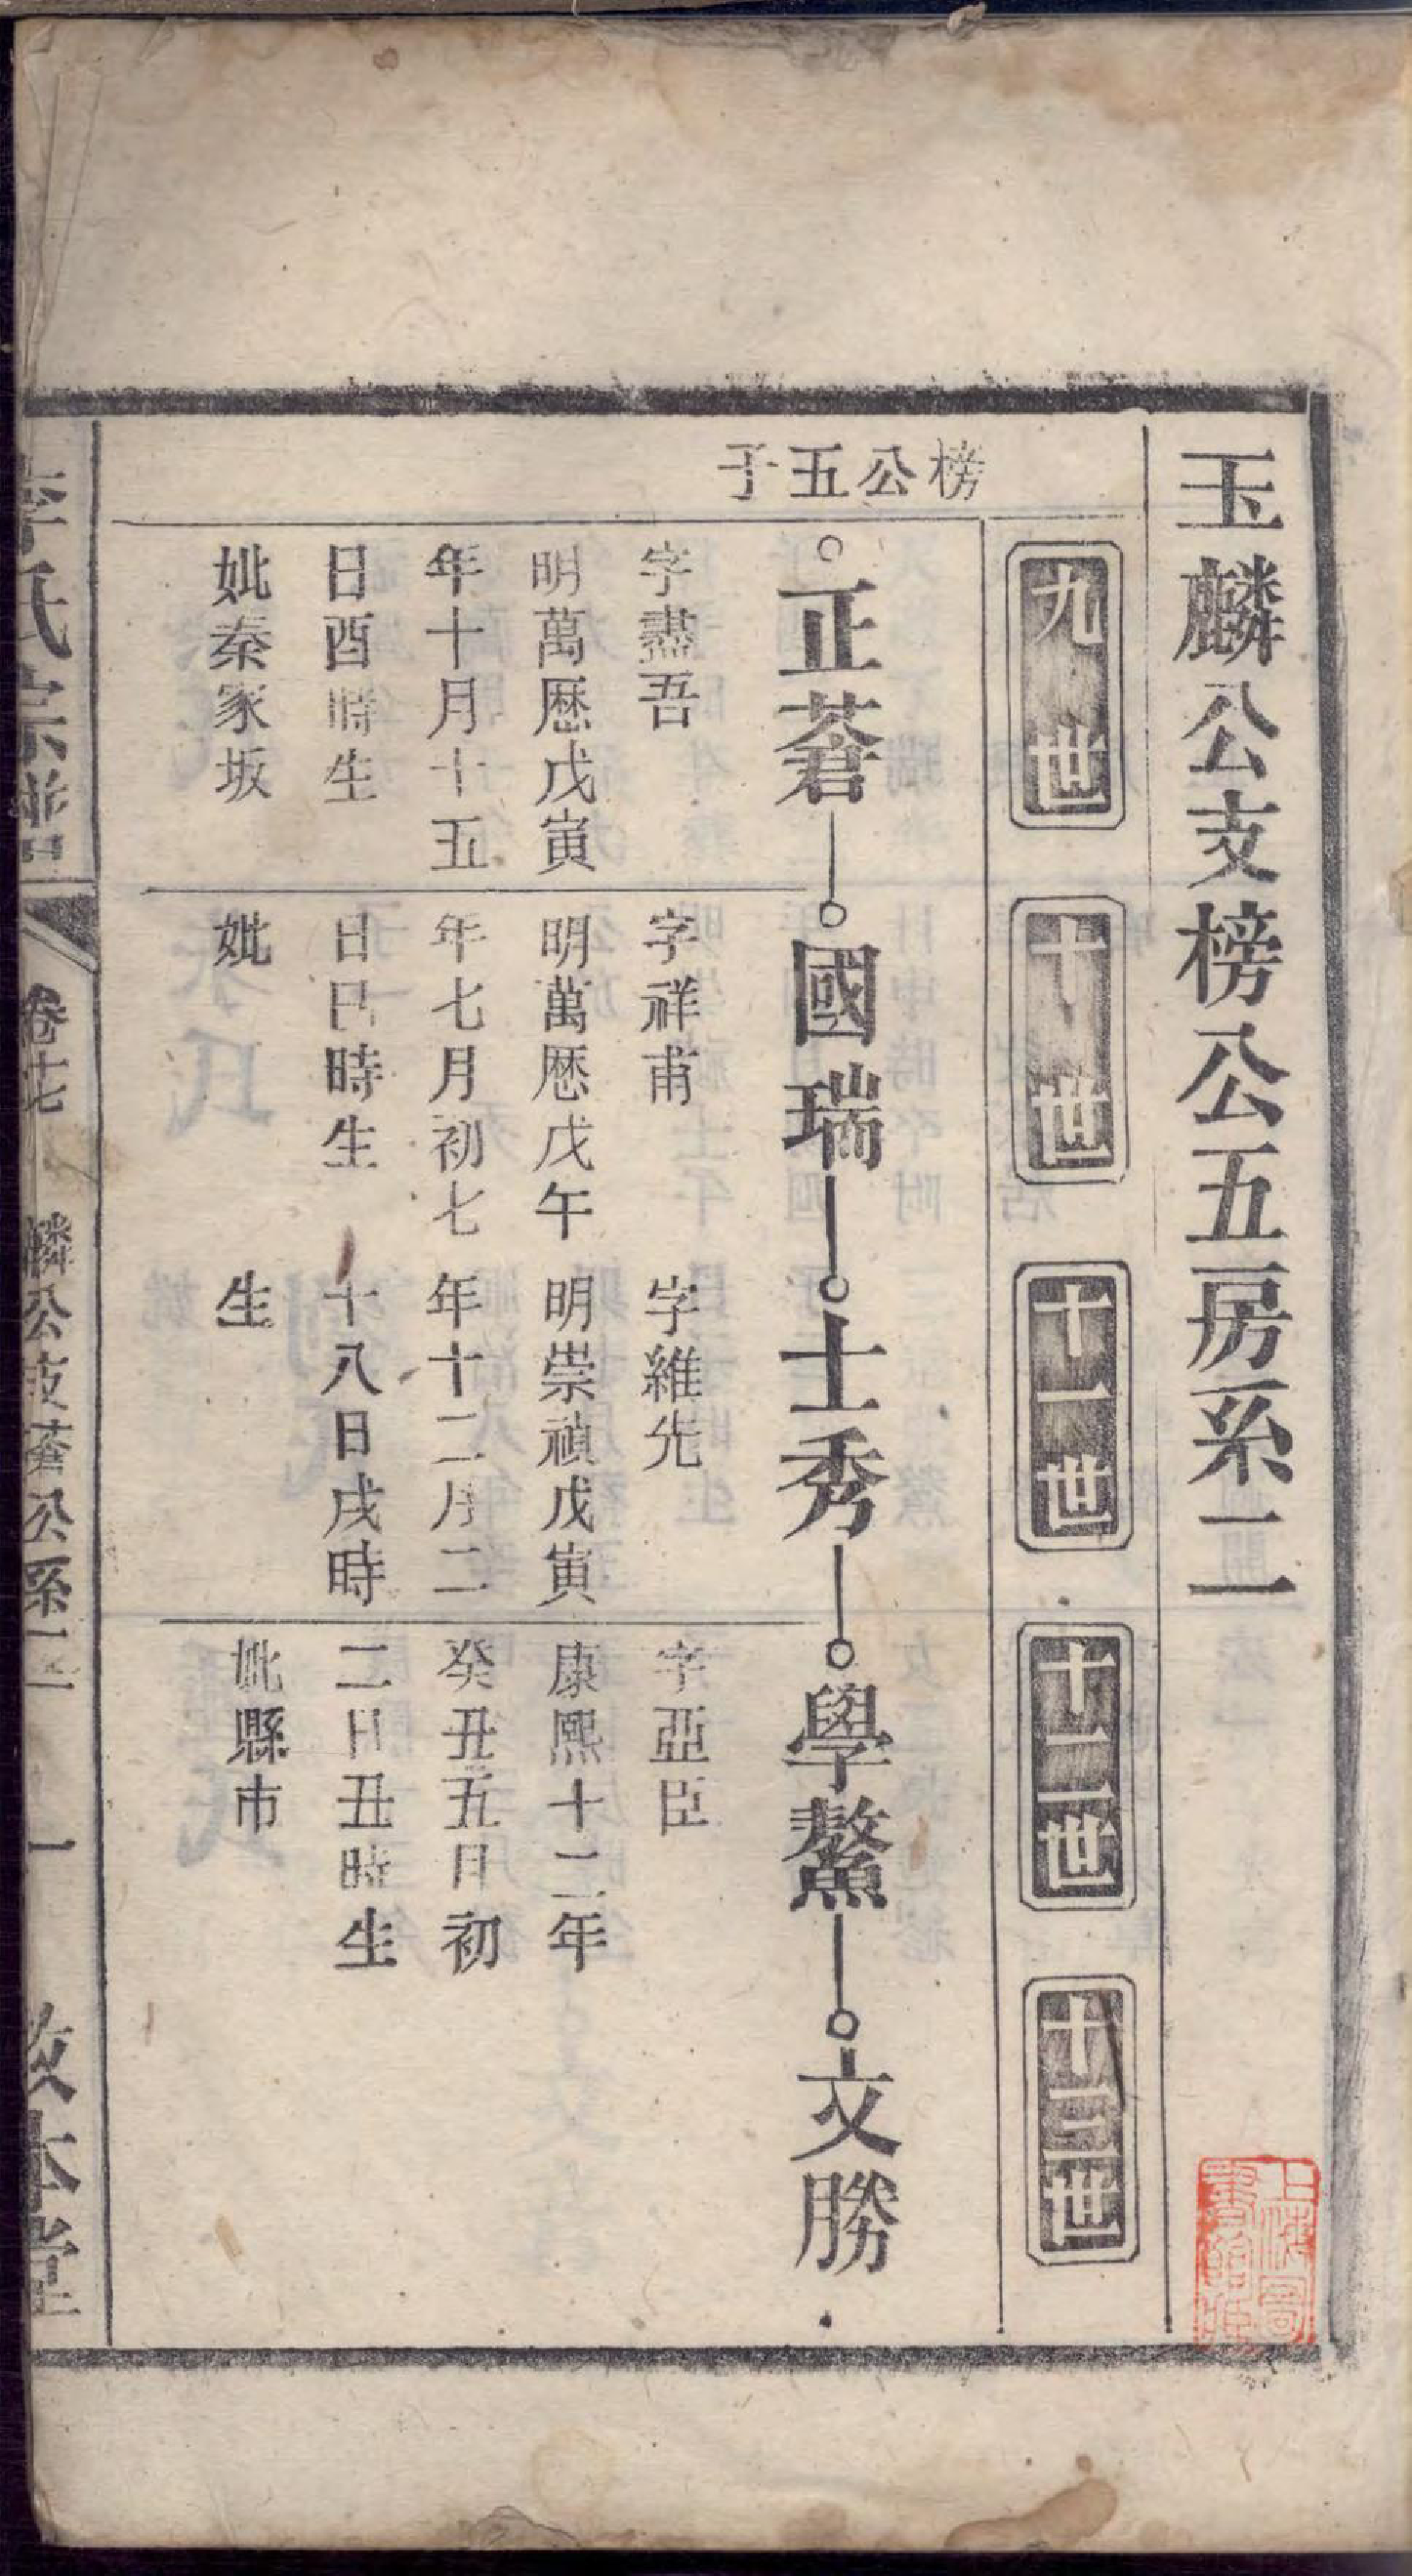 玉麟公支榜公五房系二
九世
十世
十一世
十二世
十三世
榜公五子
正蒼
國瑞
士秀
學鰲
文勝
字盡吾
明萬歷戊寅
年十月十五
日酉時生
妣秦家坂
字祥甫
明萬歷戊午
年七月初七
日巳時生
妣
字維先
明崇禎戊寅
年十二月二
十八日戌時
生
字亞臣
康熙十二年
癸丑五月初
二日丑時生
妣縣市
李氏宗譜
卷十七
麟公支蒼公系二
一
敦本堂